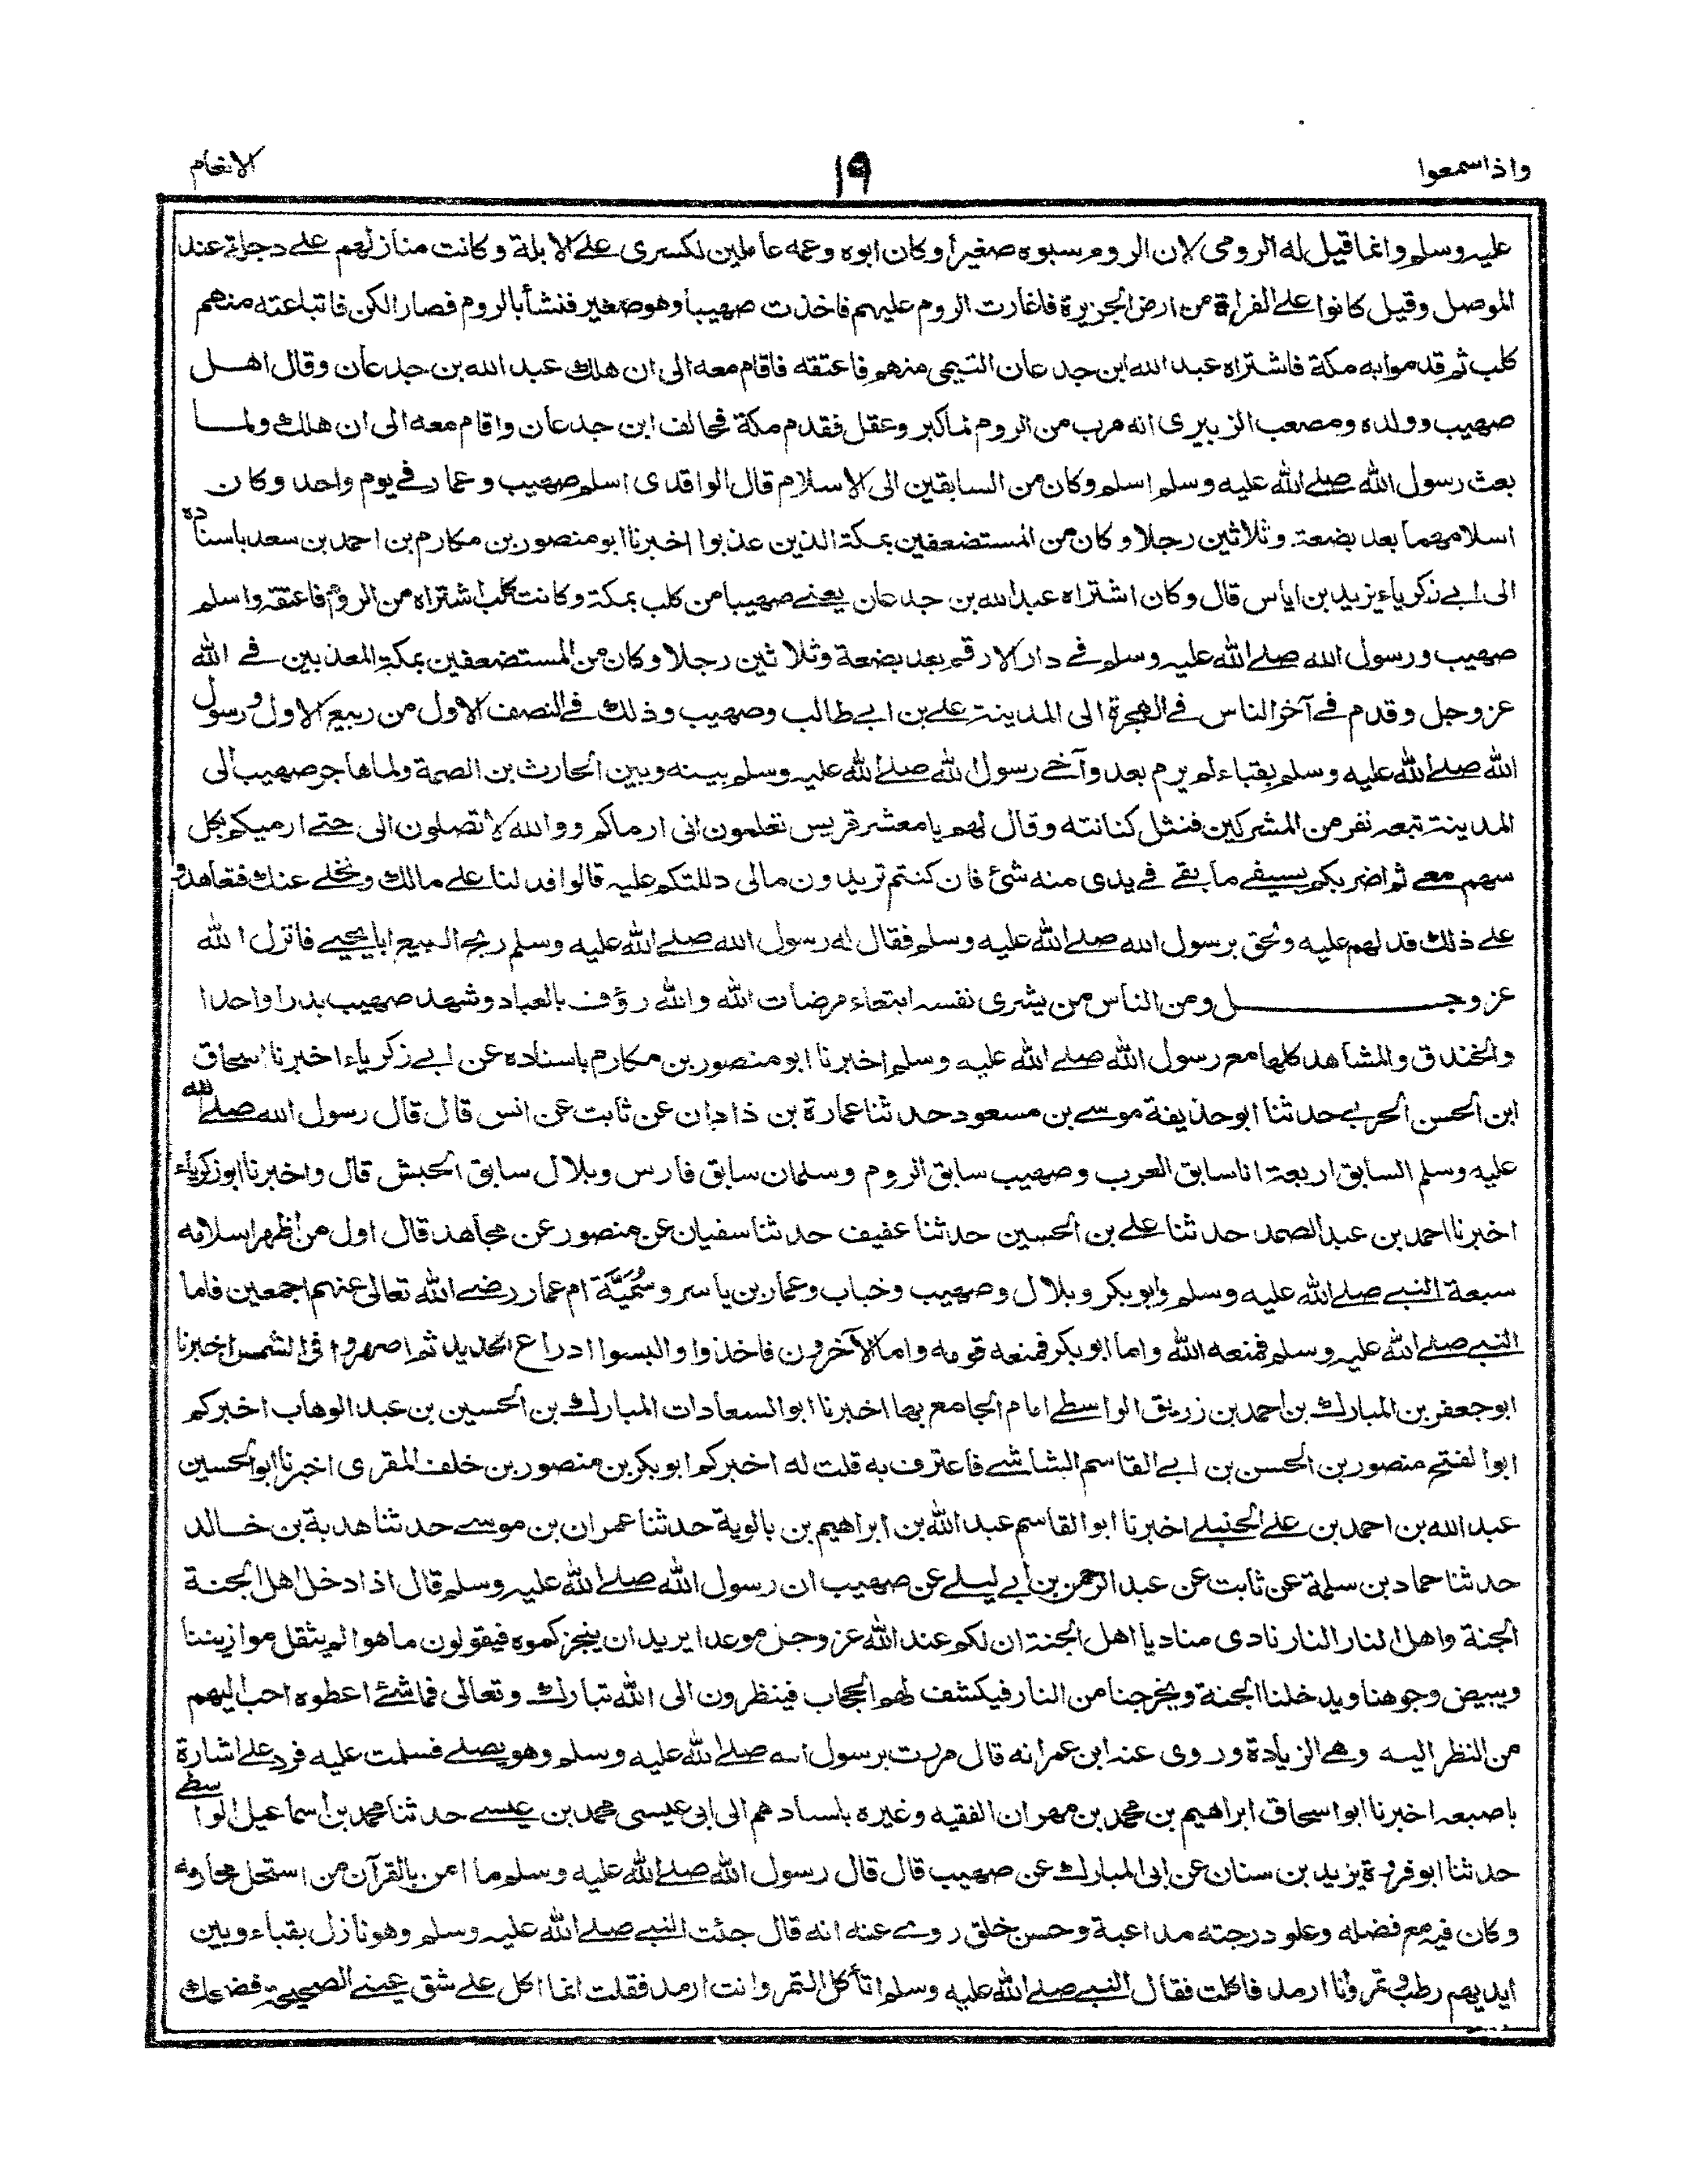 واذا سمعوا
١٩
الانعام
عليه وسلم وانما قيل له الرومى لان الروم سبوه صغيرا وكان ابوه وعمه عاملين لكسرى على الابلة وكانت منازلهم على دجلة عند
الموصل وقيل كانوا على الفراة من ارض الجزيرة فاغارت الروم عليهم فاخذت صهيبا وهو صغير فنشأ بالروم فصار الكن فابتاعته منهم
كلب ثم قدموا به مكة فاشتراه عبد الله ابن جدعان التيمى منهم فاعتقه فاقام معه الى ان هلك عبد الله بن جدعان وقال اهل
صهيب وولده ومصعب الزبيرى انه هرب من الروم لما كبر وعقل فقدم مكة فحالف ابن جدعان واقام معه الى ان هلك ولما
بعث رسول الله صلى الله عليه وسلم اسلم وكان من السابقين الى الاسلام قال الواقدى اسلم صهيب وعمار فى يوم واحد وكان
اسلامهما بعد بضعة وثلاثين رجلا وكان من المستضعفين بمكة الذين عذبوا اخبرنا ابو منصور بن مكارم بن احمد بن سعد باسناده
الى ابى زكرياء يزيد بن اياس قال وكان اشتراه عبد الله بن جدعان يعنى صهيبا من كلب بمكة وكانت كلب اشتراه من الروم فاعتقه واسلم
صهيب ورسول الله صلى الله عليه وسلم فى دار الارقم بعد بضعة وثلاثين رجلا وكان من المستضعفين بمكة المعذبين فى الله
عز وجل وقدم فى آخر الناس فى الهجرة الى المدينة على بن ابى طالب وصهيب وذلك فى النصف الاول من ربيع الاول ورسول
الله صلى الله عليه وسلم بقباء لم يرم بعد وآخى رسول الله صلى الله عليه وسلم بينه وبين الحارث بن الصمة ولما هاجر صهيب الى
المدينة تبعه نفر من المشركين فنثل كنانته وقال لهم يا معشر قريس تعلمون انى ارماكم ووالله لا تصلون الى حتى ارميكم بكل
سهم معى ثم اضربكم بسيفى ما بقى فى يدى منه شئ فان كنتم تريدون مالى دللتكم عليه قالوا فدلنا على مالك ونخلى عنك فتعاهدوا
على ذلك فدلهم عليه ولحق برسول الله صلى الله عليه وسلم فقال له رسول الله صلى الله عليه وسلم ربح البيع ابا يحيى فانزل الله
عز وجل ومن الناس من يشرى نفسه ابتغاء مرضات الله والله رؤف بالعباد وشهد صهيب بدرا واحدا
والخندق والمشاهد كلها مع رسول الله صلى الله عليه وسلم اخبرنا ابو منصور بن مكارم باسناده عن ابى زكرياء اخبرنا اسحاق
ابن الحسن الحربى حدثنا ابو حذيفة موسى بن مسعود حدثنا عمارة بن ذاذان عن ثابت عن انس قال قال رسول الله صلى الله
عليه وسلم السابق اربعة انا سابق العرب وصهيب سابق الروم وسلمان سابق فارس وبلال سابق الحبش قال واخبرنا ابو زكرياء
اخبرنا احمد بن عبد الصمد حدثنا على بن الحسين حدثنا عفيف حدثنا سفيان عن منصور عن مجاهد قال اول من اظهر اسلامه
سبعة النبى صلى الله عليه وسلم وابو بكر وبلال وصهيب وخباب وعمار بن ياسر وسُمَيَّة ام عمار رضى الله تعالى عنهم اجمعين فاما
النبى صلى الله عليه وسلم فمنعه الله واما ابو بكر فمنعه قومه واما الآخرون فاخذوا والبسوا ادراع الحديد ثم اصهروا فى الشمس اخبرنا
ابو جعفر بن المبارك بن احمد بن زريق الواسطى امام الجامع بها اخبرنا ابو السعادات المبارك بن الحسين بن عبد الوهاب اخبركم
ابو الفتح منصور بن الحسن بن ابى القاسم الشاشى فاعترف به قلت له اخبركم ابو بكر بن منصور بن خلف المقرى اخبرنا ابو الحسين
عبد الله بن احمد بن على الحنبلى اخبرنا ابو القاسم عبد الله بن ابراهيم بن بالوية حدثنا عمران بن موسى حدثنا هدبة بن خالد
حدثنا حماد بن سلمة عن ثابت عن عبد الرحمن بن ابى ليلى عن صهيب ان رسول الله صلى الله عليه وسلم قال اذا دخل اهل الجنة
الجنة واهل النار النار نادى مناد يا اهل الجنة ان لكم عند الله عز وجل موعدا يريد ان ينجزكموه فيقولون ما هو الم يثقل موازيننا
ويبيض وجوهنا ويدخلنا الجنة ويخرجنا من النار فيكشف لهم الحجاب فينظرون الى الله تبارك وتعالى فما شئ اعطوه احب اليهم
من النظر اليه وهى الزيادة وروى عنه ابن عمر انه قال مررت برسول الله صلى الله عليه وسلم وهو يصلى فسلمت عليه فرد على اشارة
باصبعه اخبرنا ابو اسحاق ابراهيم بن محمد بن مهران الفقيه وغيره باسنادهم الى ابى عيسى محمد بن عيسى حدثنا محمد بن اسماعيل الواسطى
حدثنا ابو فروة يزيد بن سنان عن ابى المبارك عن صهيب قال قال رسول الله صلى الله عليه وسلم ما امن بالقرآن من استحل محارمه
وكان فيه مع فضله وعلو درجته مداعبة وحسن خلق روى عنه انه قال جئت النبى صلى الله عليه وسلم وهو نازل بقباء وبين
ايديهم رطب وتمر وانا ارمد فاكلت فقال النبى صلى الله عليه وسلم اتأكل التمر وانت ارمد فقلت انما اكل على شق عينى الصحيحة فضحك